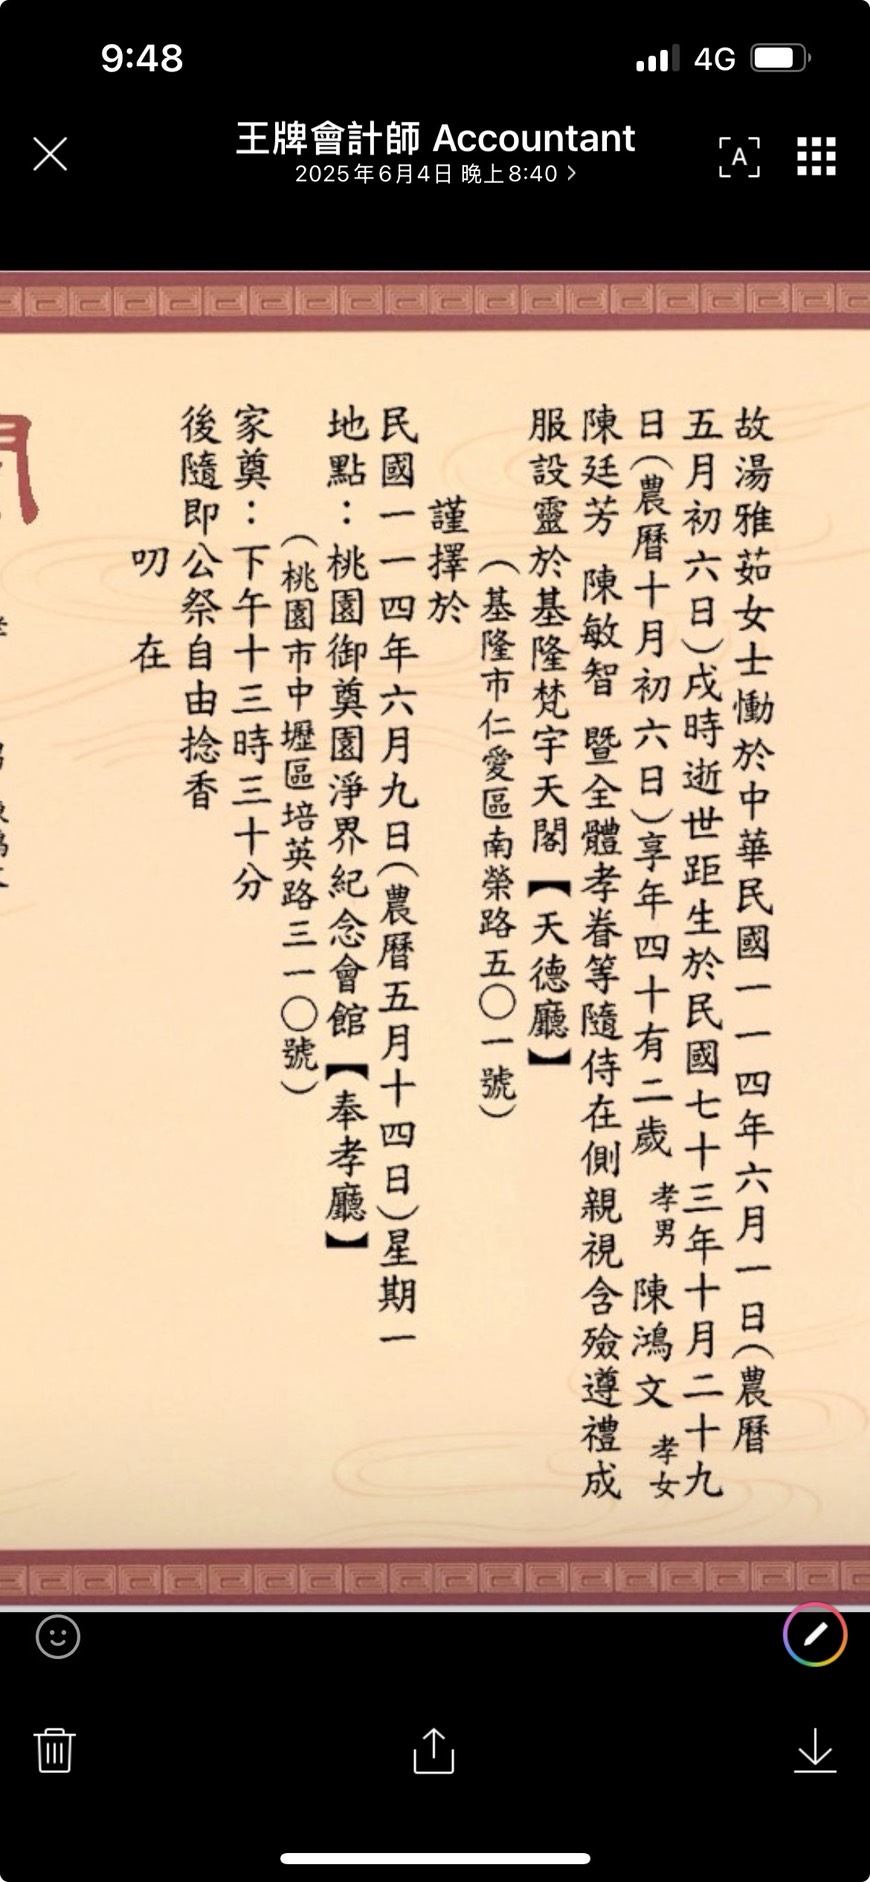 9:48
4G
王牌會計師 Accountant
2025年6月4日 晚上8:40
A
故湯雅茹女士慟於中華民國一一四年六月一日(農曆
五月初六日)戌時逝世距生於民國七十三年十月二十九
日(農曆十月初六日)享年四十有二歲 孝男 陳鴻文 孝女
陳廷芳 陳敏智 暨全體孝眷等隨侍在側親視含殮遵禮成
服設靈於基隆梵宇天閣【天德廳】
(基隆市仁愛區南榮路五〇一號)
謹擇於
民國一一四年六月九日(農曆五月十四日)星期一
地點:桃園御奠園淨界紀念會館【奉孝廳】
(桃園市中壢區培英路三一〇號)
家奠:下午十三時三十分
後隨即公祭自由捻香
叨 在